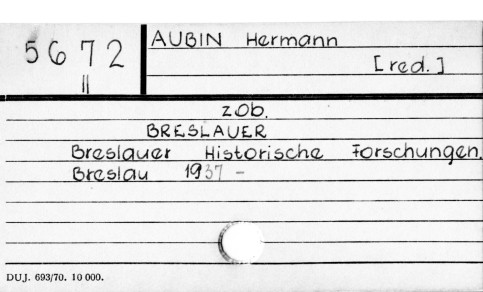 5672
II
AUBIN Hermann
[red.]
zob.
BRESLAUER
Breslauer Historische Forschungen.
Breslau 1937 -
DUJ. 693/70. 10 000.